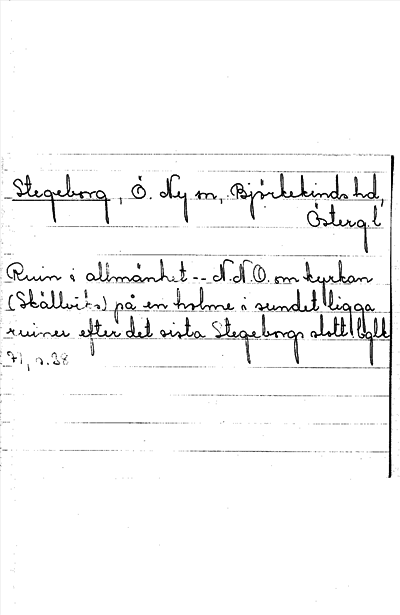 Stegeborg, Ö. Ny sn, Björkekinds hd,
Östergl
Ruin i allmänhet -- N.N.O. om kyrkan
(Skällviks) på en holme i sundet ligga
ruiner efter det sista Stegeborgs slott. Bglk
71, s. 38